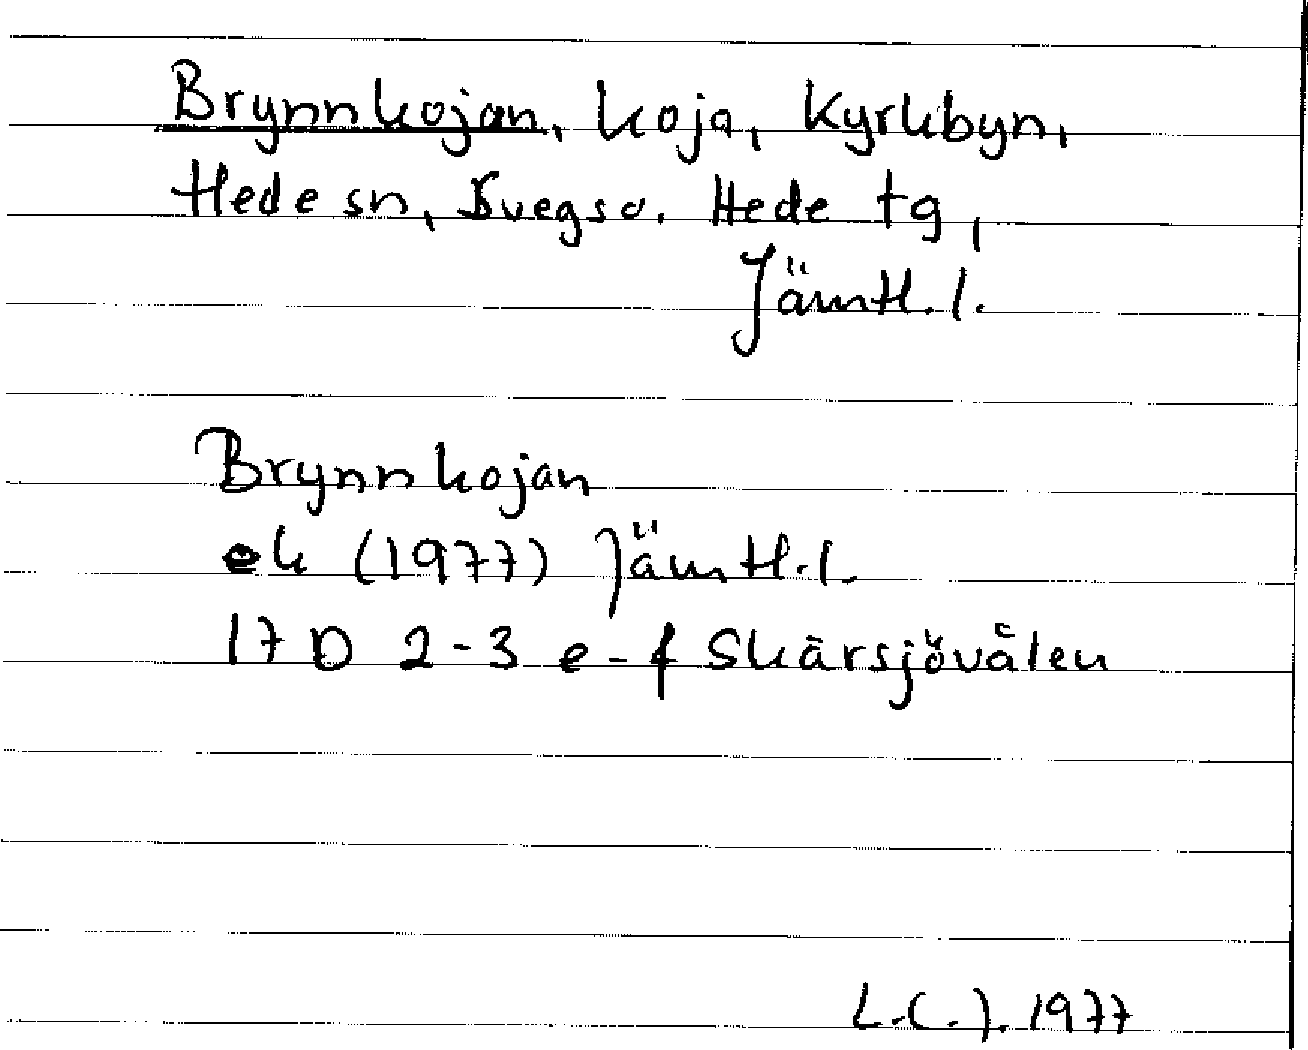 Brynnkojan, koja, Kyrkbyn,
Hede sn, Svegs d. Hede tg,
Jämtl. l.
Brynnkojan
ek (1977) Jämtl. l.
17 D 2-3 e-f Skärsjövålen
L.C.J. 1977